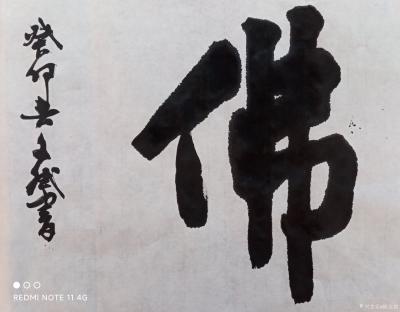 佛
癸卯吴文斌书
REDMI NOTE 11 4G